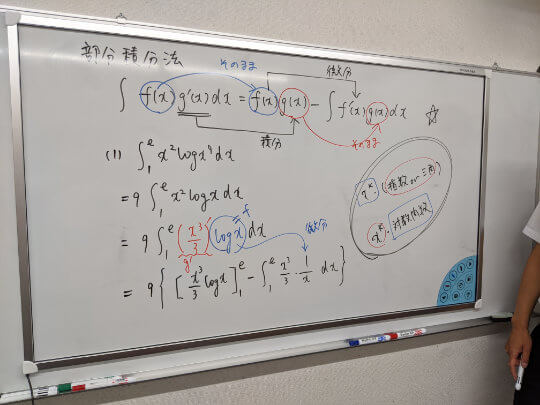 部分積分法
そのまま 微分
∫ f(x) g'(x) dx = f(x) g(x) - ∫ f'(x) g(x) dx ☆
積分 そのまま
(1) ∫₁ᵉ x² log x⁹ dx
= 9 ∫₁ᵉ x² log x dx
= 9 ∫₁ᵉ (x³/3)' log x dx
g' f 微分
= 9 { [x³/3 log x]₁ᵉ - ∫₁ᵉ x³/3 · 1/x dx }
xᵏ · (指数 or 三角)
xᵏ · 対数関数